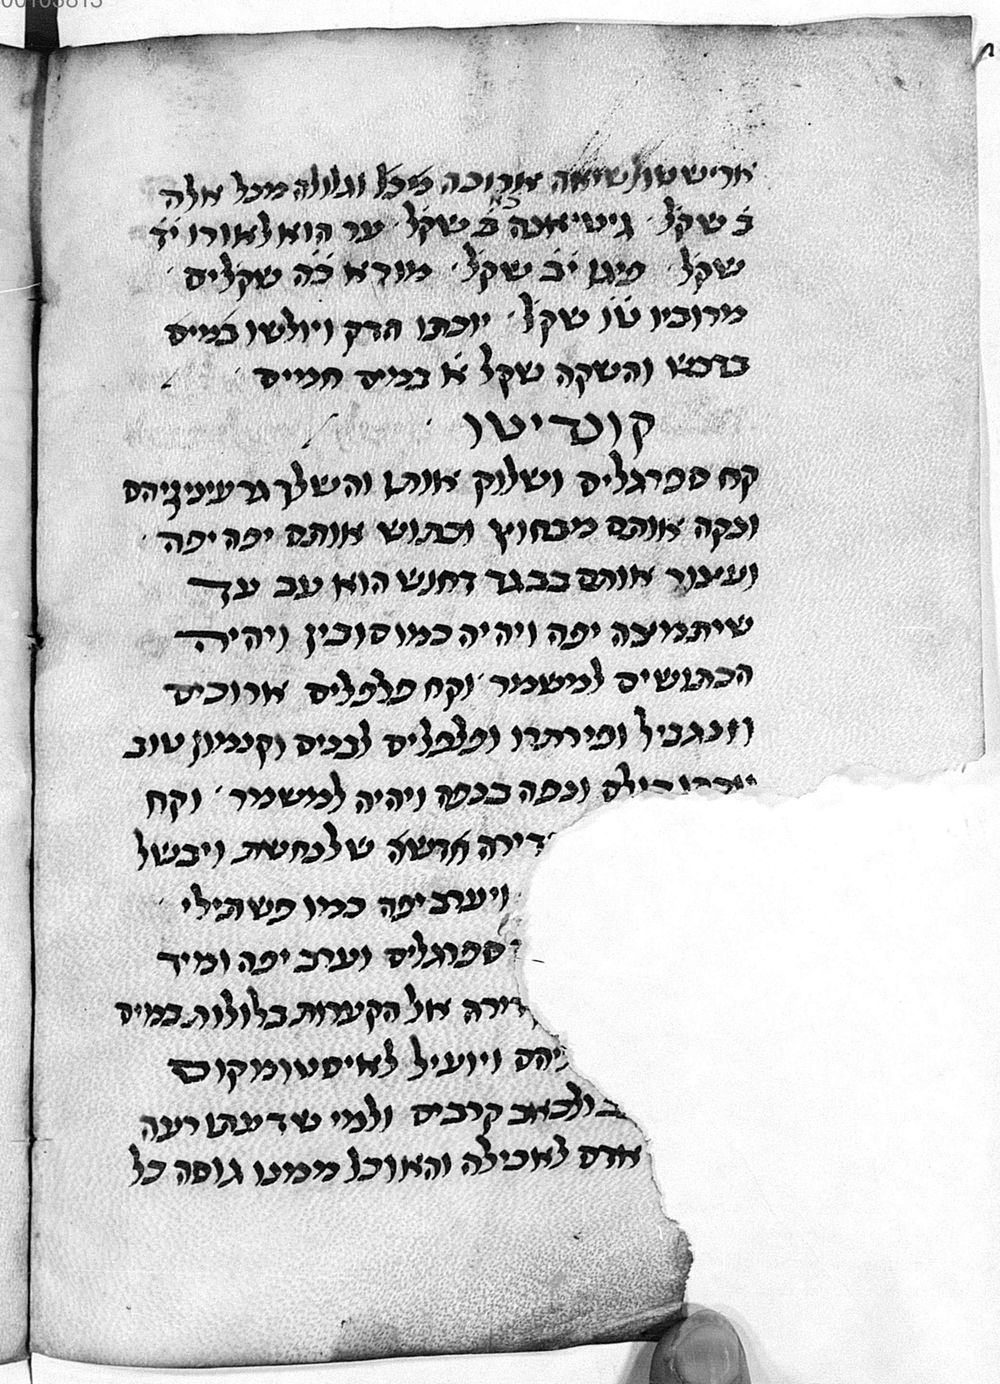 00105813
ארישטולושיאה ארוכה מכל וגלולה מכל אלה
ב שקל גיטיאנה ב שקל ער הוא לאורו יד
שקל מיגן יב שקל מורא כה שקלים
מרוביו טו שקל יוכתו הדק ויולשו במים
בדבש והשקה שקל א במים חמים
קונדיטו
קח ספרגלים ושלוק אותן והשלך גרעיניהם
ונקה אותם מבחוץ וכתוש אותם יפה יפה
ועצור אותם בבגד דחוש הוא עב עד
שיתמצה יפה ויהיה כמו סובין ויהיה
הכתושים למשמר וקח פלפלים ארוכים
וזנגביל ופירתרו ופלפלים לבנים וקנמון טוב
ונפה בנפה ויהיה למשמר וקח
דירה חדשה של נחשת ויבשל
ויערב יפה כמו פשתילי
ספרגלים וערב יפה ומיד
דירה אל הקערות בלולות במים
יהם ויועיל לאיסטומקום
ב ולכאב קרבים ולמי שדעתו רעה
אדם לאכילה והאוכל ממנו גוסה כל